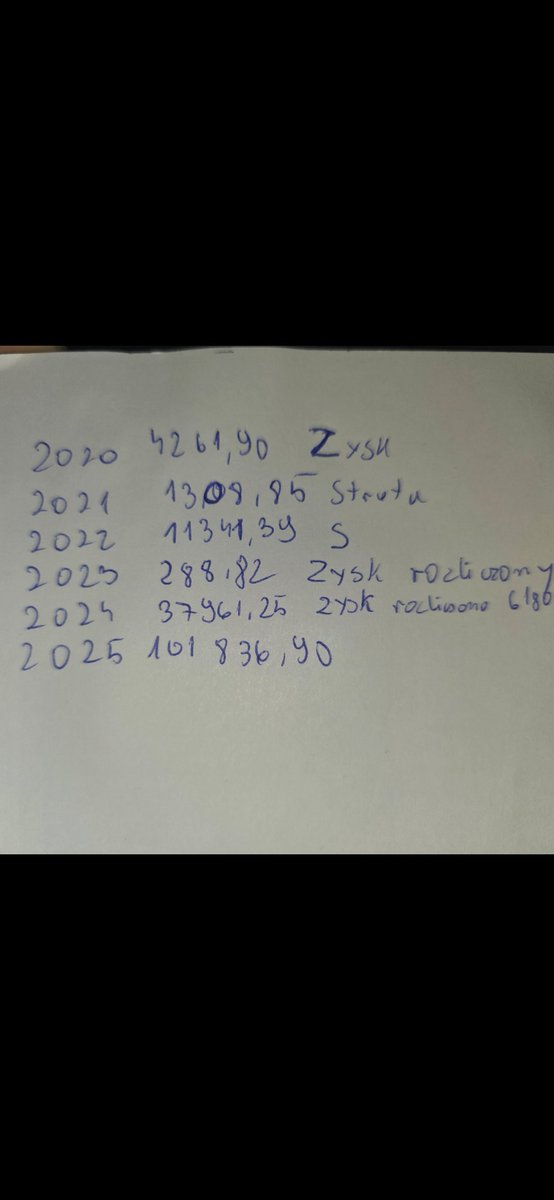 2020 4261,90 Zysk
2021 1308,85 Strata
2022 11341,39 S
2023 288,82 Zysk rozliczony
2024 37961,25 zysk rozliczono 6180
2025 101 836,90